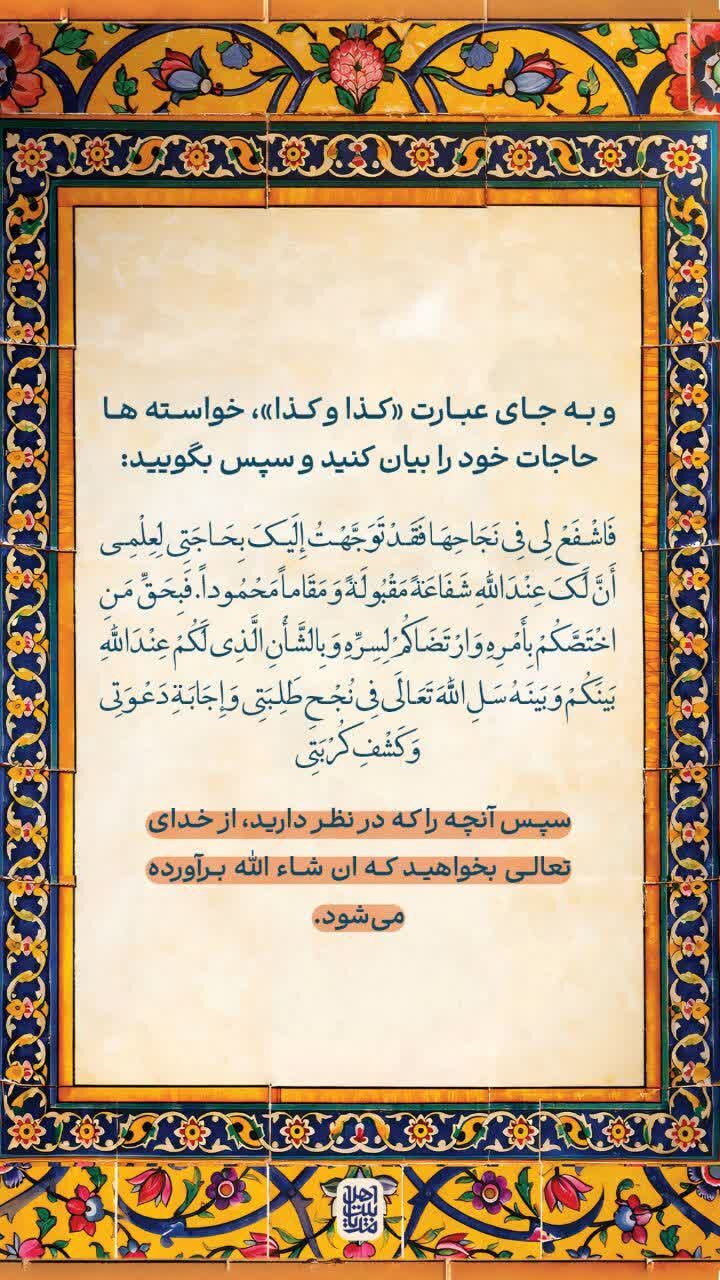 و به جای عبارت «کذا و کذا»، خواسته ها
حاجات خود را بیان کنید و سپس بگویید:
فَاشْفَعْ لِی فِی نَجَاحِهَا فَقَدْ تَوَجَّهْتُ إِلَیکَ بِحَاجَتِی لِعِلْمِی
أَنَّ لَکَ عِنْدَ اللهِ شَفَاعَةً مَقْبُولَةً وَ مَقَاماً مَحْمُوداً. فَبِحَقِّ مَنِ
اخْتَصَّکُمْ بِأَمْرِهِ وَ ارْتَضَاکُمْ لِسِرِّهِ وَ بِالشَّأْنِ الَّذِی لَکُمْ عِنْدَ اللهِ
بَینَکُمْ وَ بَینَهُ سَلِ اللهَ تَعَالَی فِی نُجْحِ طَلِبَتِی وَ إِجَابَةِ دَعْوَتِی
وَ کَشْفِ کُرْبَتِی
سپس آنچه را که در نظر دارید، از خدای
تعالی بخواهید که ان شاء الله برآورده
می‌شود.